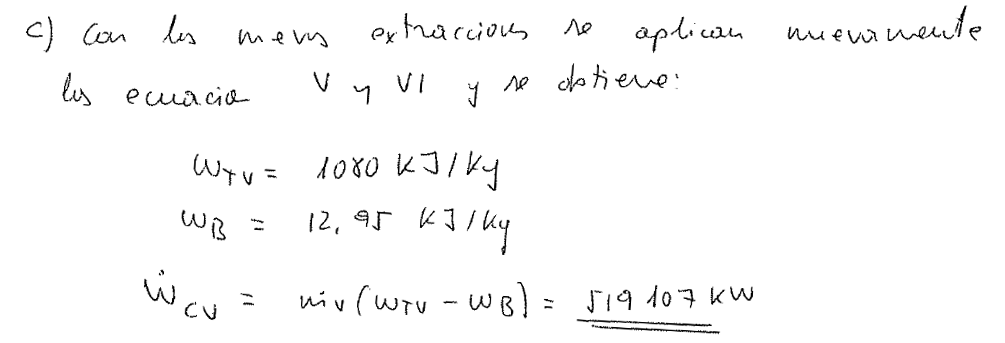 c) Con las nuevas extracciones se aplican nuevamente
las ecuacion V y VI y se obtiene:
w_TV = 1080 KJ/Kg
w_B = 12,95 KJ/Kg
Ẇ_CV = ṁ_v (w_TV - w_B) = 519 107 KW